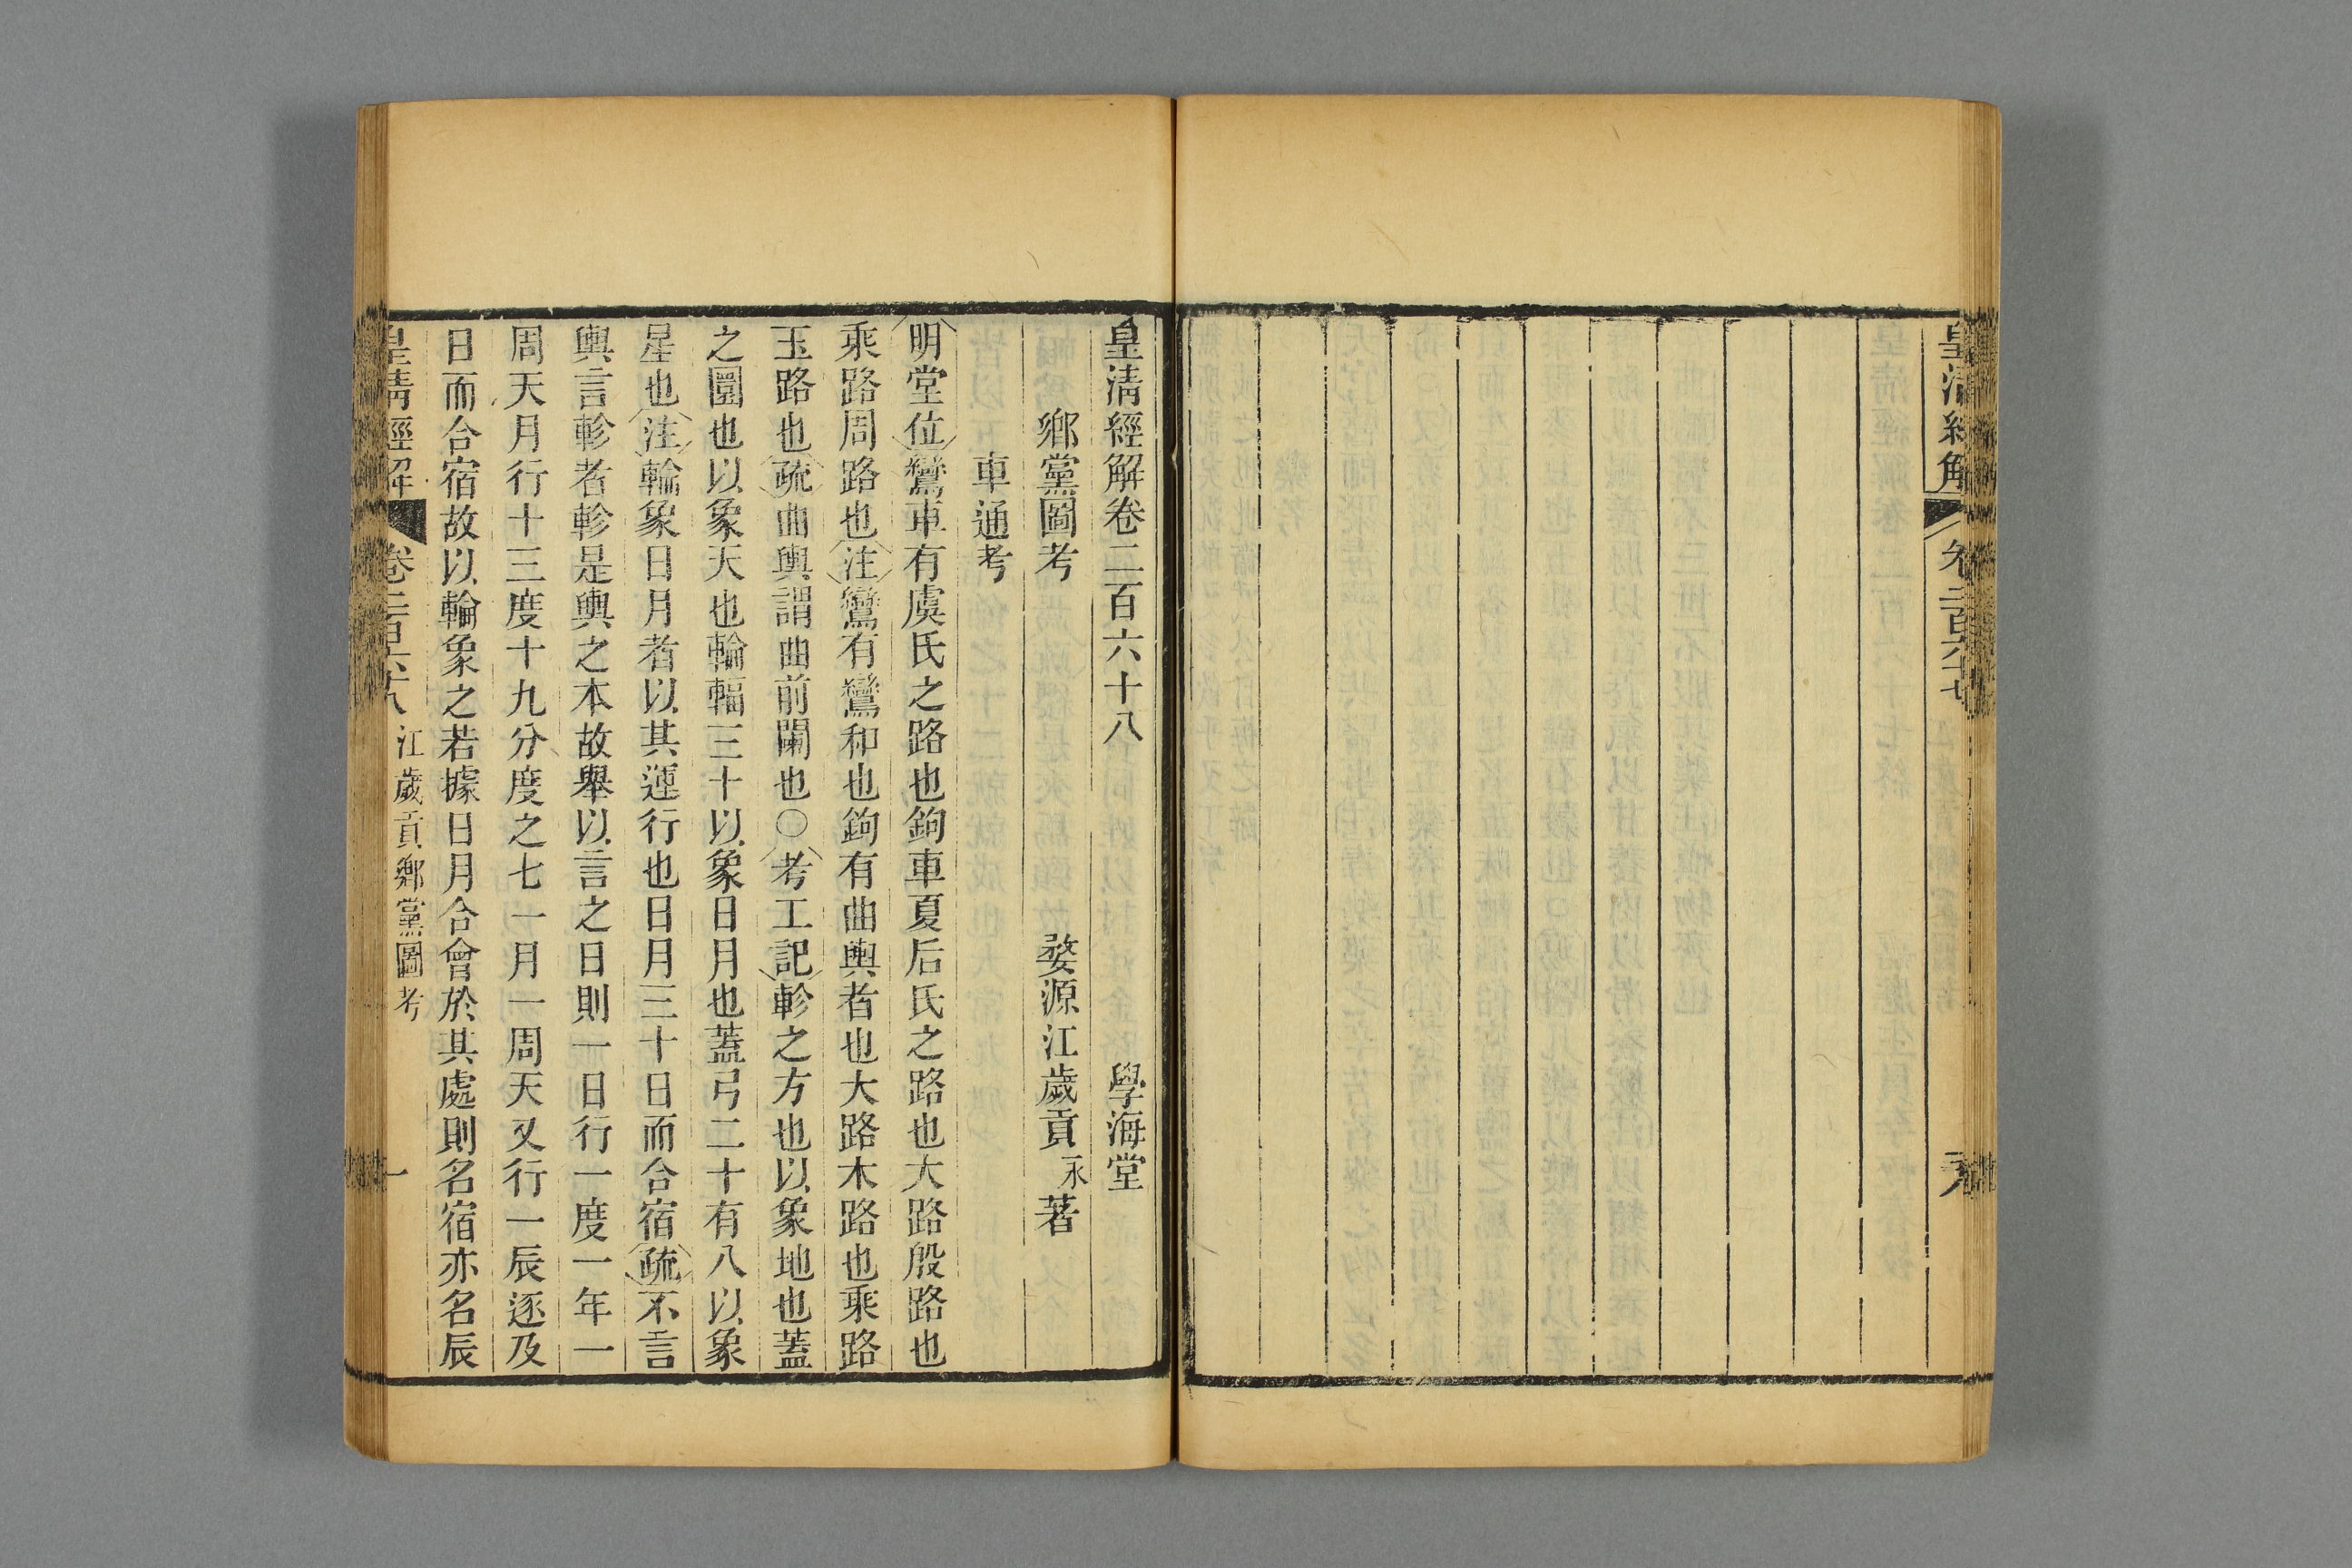 皇清經解
卷二百六十七
皇清經解卷二百六十八
學海堂
鄉黨圖考
婺源江歲貢永著
車通考
明堂位鸞車有虞氏之路也鉤車夏后氏之路也大路殷路也
乘路周路也注鸞有鸞和也鉤有曲輿者也大路木路也乘路
玉路也疏曲輿謂曲前闌也○考工記軫之方也以象地也蓋
之圜也以象天也輪輻三十以象日月也蓋弓二十有八以象
星也注輪象日月者以其運行也日月三十日而合宿疏不言
輿言軫者軫是輿之本故舉以言之日則一日行一度一年一
周天月行十三度十九分度之七一月一周天又行一辰逐及
日而合宿故以輪象之若據日月合會於其處則名宿亦名辰
皇清經解
卷二百六十八
江歲貢鄉黨圖考
一